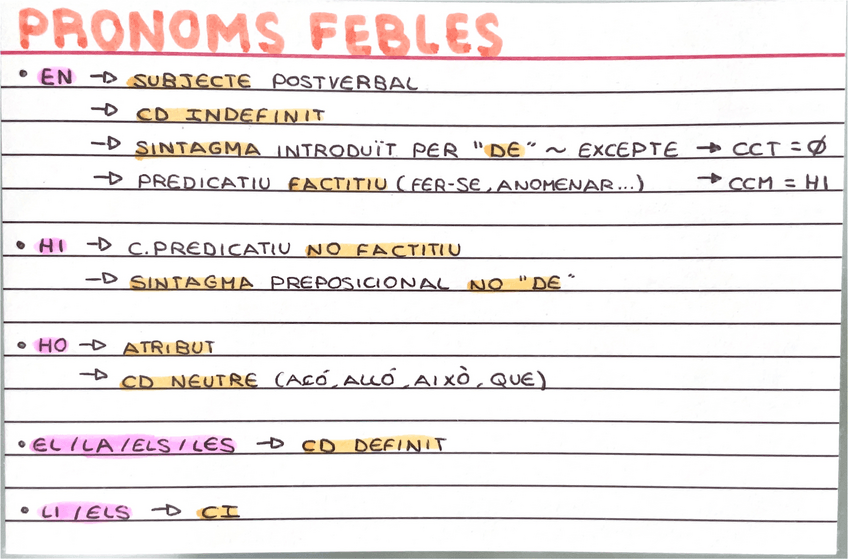 PRONOMS FEBLES
• EN → SUBJECTE POSTVERBAL
→ CD INDEFINIT
→ SINTAGMA INTRODUÏT PER "DE" ~ EXCEPTE → CCT = Ø
→ PREDICATIU FACTITIU (FER-SE, ANOMENAR...) → CCM = HI
• HI → C.PREDICATIU NO FACTITIU
→ SINTAGMA PREPOSICIONAL NO "DE"
• HO → ATRIBUT
→ CD NEUTRE (AÇÓ, ALLÓ, AIXÒ, QUE)
• EL/LA/ELS/LES → CD DEFINIT
• LI/ELS → CI